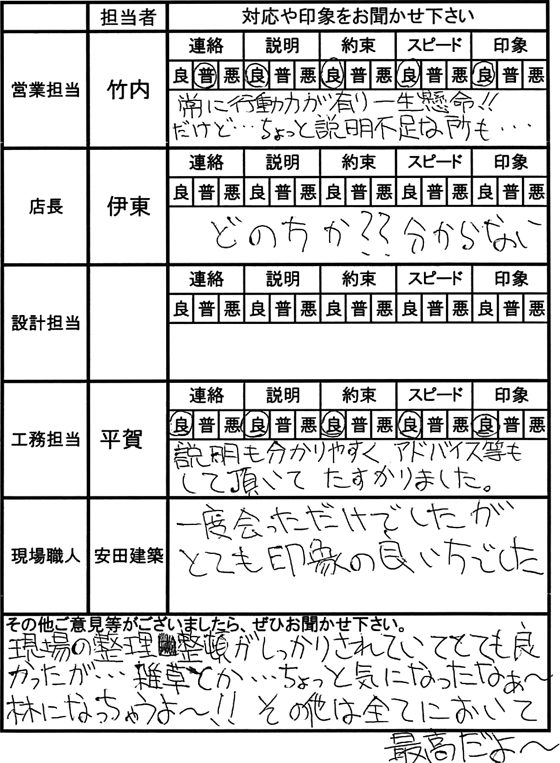 担当者 対応や印象をお聞かせ下さい
営業担当 竹内
連絡 説明 約束 スピード 印象
良 普 悪 良 普 悪 良 普 悪 良 普 悪 良 普 悪
常に行動力が有り一生懸命!!
だけど…ちょっと説明不足な所も…
店長 伊東
連絡 説明 約束 スピード 印象
良 普 悪 良 普 悪 良 普 悪 良 普 悪 良 普 悪
どのちか?? 分からない
設計担当
連絡 説明 約束 スピード 印象
良 普 悪 良 普 悪 良 普 悪 良 普 悪 良 普 悪
工務担当 平賀
連絡 説明 約束 スピード 印象
良 普 悪 良 普 悪 良 普 悪 良 普 悪 良 普 悪
説明も分かりやすく アドバイス等も
して頂いて たすかりました。
現場職人 安田建築
一度会っただけでしたが
とても印象の良い方でした
その他ご意見等がございましたら、ぜひお聞かせ下さい。
現場の整理整頓がしっかりされていてとても良
かったが… 雑草とか…ちょっと気になったなぁ〜
林になっちゃうよ〜!! その他は全てにおいて
最高だよ〜